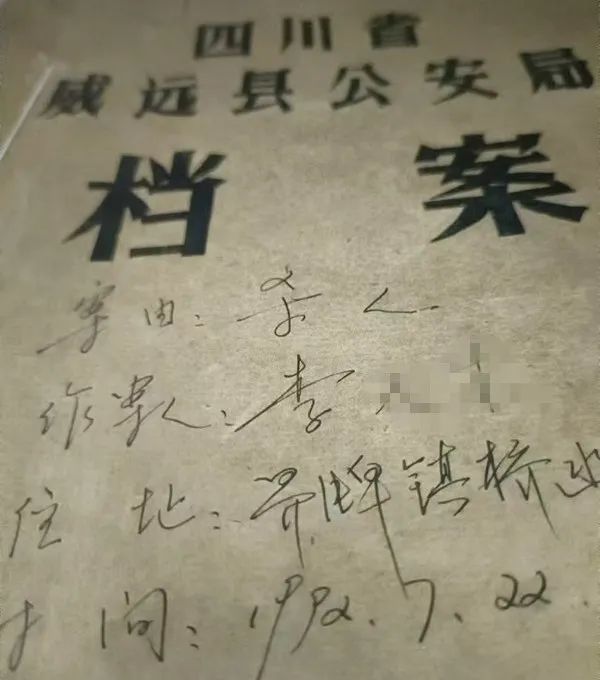 四川省
威远县公安局
档案
案由：杀人
作案人：李
住址：界牌镇桥边
时间：1992.7.22.